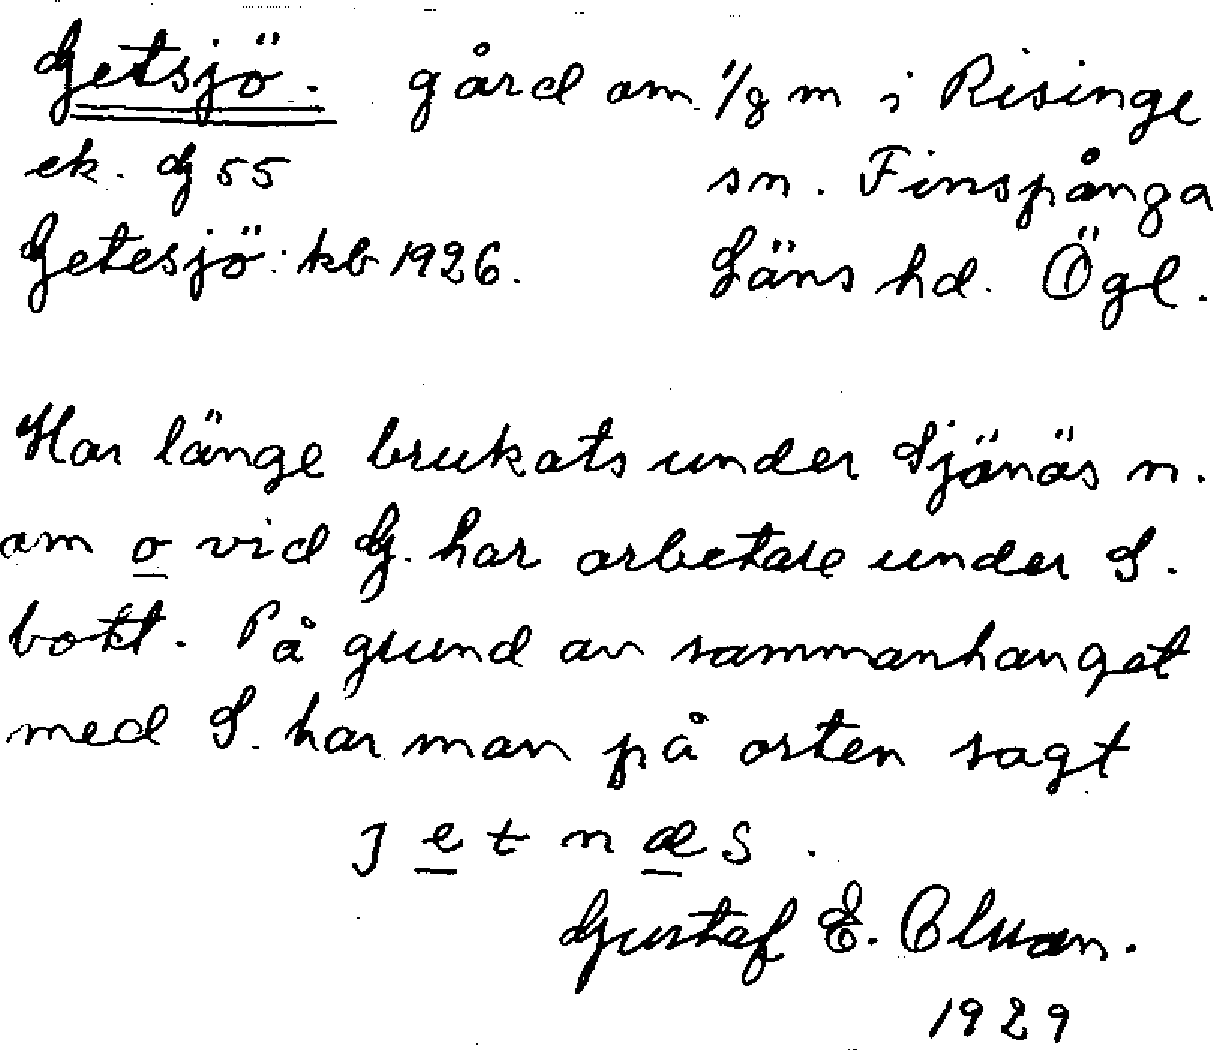 Getsjö. gård om 1/8 m i Risinge
ek. G 55 sn. Finspånga
Getesjö: kb 1926. Läns hd. Ögl.
Har länge brukats under Sjönäs n.
om o vid G. har arbetare under S.
bott. På grund av sammanhanget
med S. har man på orten sagt
j e t n æ s .
Gustaf E.
1929